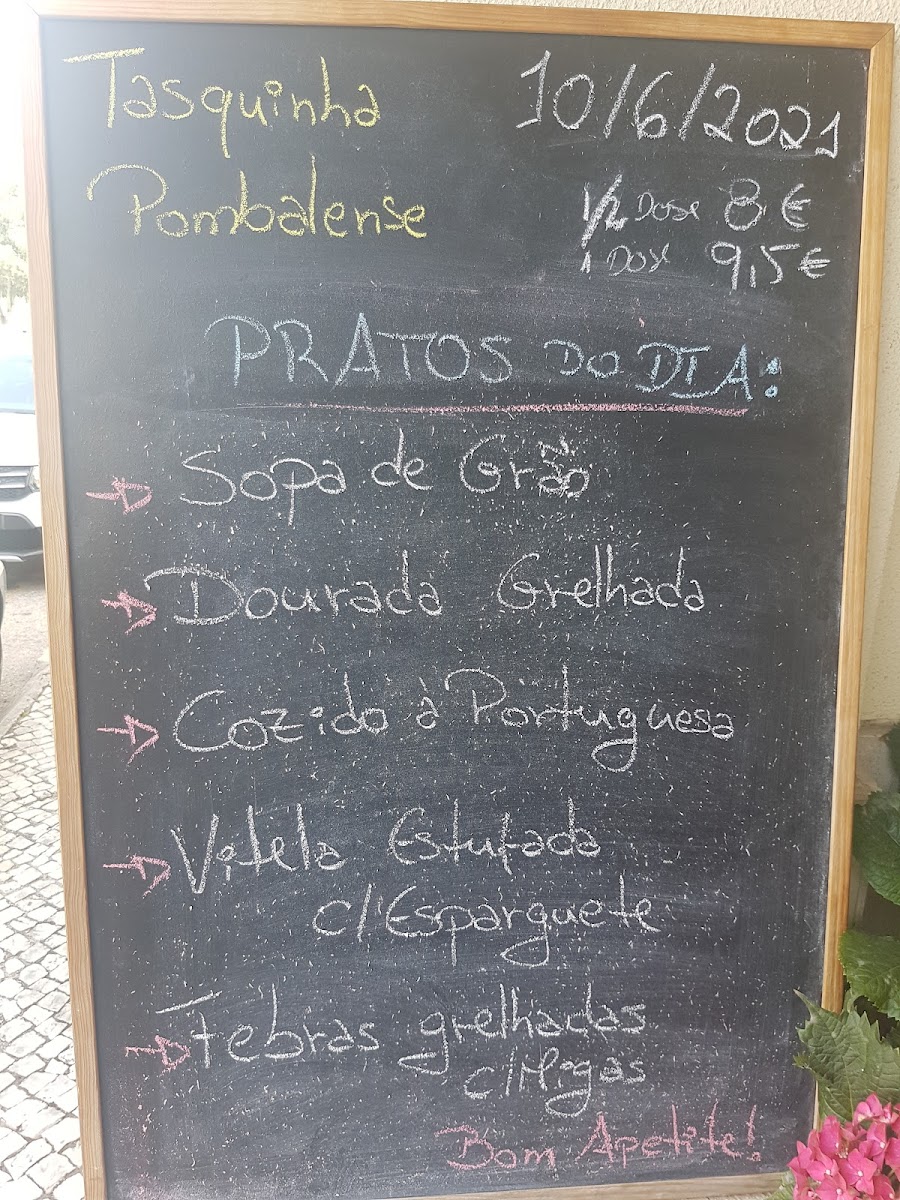 Tasquinha
Pombalense
10/6/2021
1/2 Dose 8 €
1 Dose 9,5 €
PRATOS DO DIA:
Sopa de Grão
Dourada Grelhada
Cozido à Portuguesa
Vitela Estufada
c/ Esparguete
Febras grelhadas
c/ Migas
Bom Apetite!